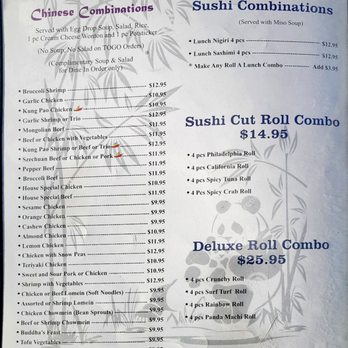 Chinese Combinations
Served with Egg Drop Soup, Salad, Rice,
1 pc Cream Cheese Wonton and 1 pc Potsticker
(No Soup, No Salad on TOGO Orders)
(Complimentary Soup & Salad
for Dine In Order only)
• Broccoli Shrimp $12.95
• Garlic Chicken $10.95
• Kung Pao Chicken $10.95
• Garlic Shrimp or Trio $12.95
• Mongolian Beef $11.95
• Beef or Chicken with Vegetables $11.95
• Kung Pao Shrimp or Beef or Trio $12.95
• Szechuan Beef or Chicken or Pork $11.95
• Pepper Beef $11.95
• Broccoli Beef $11.95
• House Special Chicken $10.95
• House Special Beef $11.95
• Sesame Chicken $10.95
• Orange Chicken $10.95
• Cashew Chicken $10.95
• Almond Chicken $10.95
• Lemon Chicken $10.95
• Chicken with Snow Peas $12.95
• Teriyaki Chicken $10.95
• Sweet and Sour Pork or Chicken $10.95
• Shrimp with Vegetables $12.95
• Chicken or Beef Lomein (Soft Noodles) $9.95
• Assorted or Shrimp Lomein $9.95
• Chicken Chowmein (Bean Sprouts) $9.95
• Beef or Shrimp Chowmein $9.95
• Buddha's Feast $9.95
• Tofu Vegetables $9.95
Sushi Combinations
(Served with Miso Soup)
• Lunch Nigiri 4 pcs $12.95
• Lunch Sashimi 4 pcs $12.95
• Make Any Roll A Lunch Combo Add $3.95
Sushi Cut Roll Combo
$14.95
• 4 pcs Philadelphia Roll
• 4 pcs California Roll
• 4 pcs Spicy Tuna Roll
• 4 Pcs Spicy Crab Roll
Deluxe Roll Combo
$25.95
• 4 pcs Crunchy Roll
• 4 pcs Surf Turf Roll
• 4 pcs Rainbow Roll
• 4 pcs Panda Machi Roll